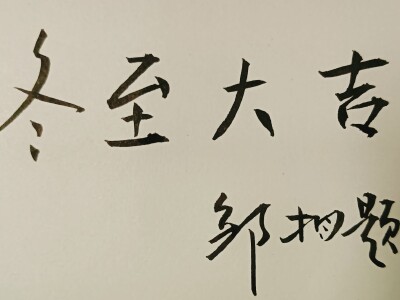 冬至大吉
邹栩题